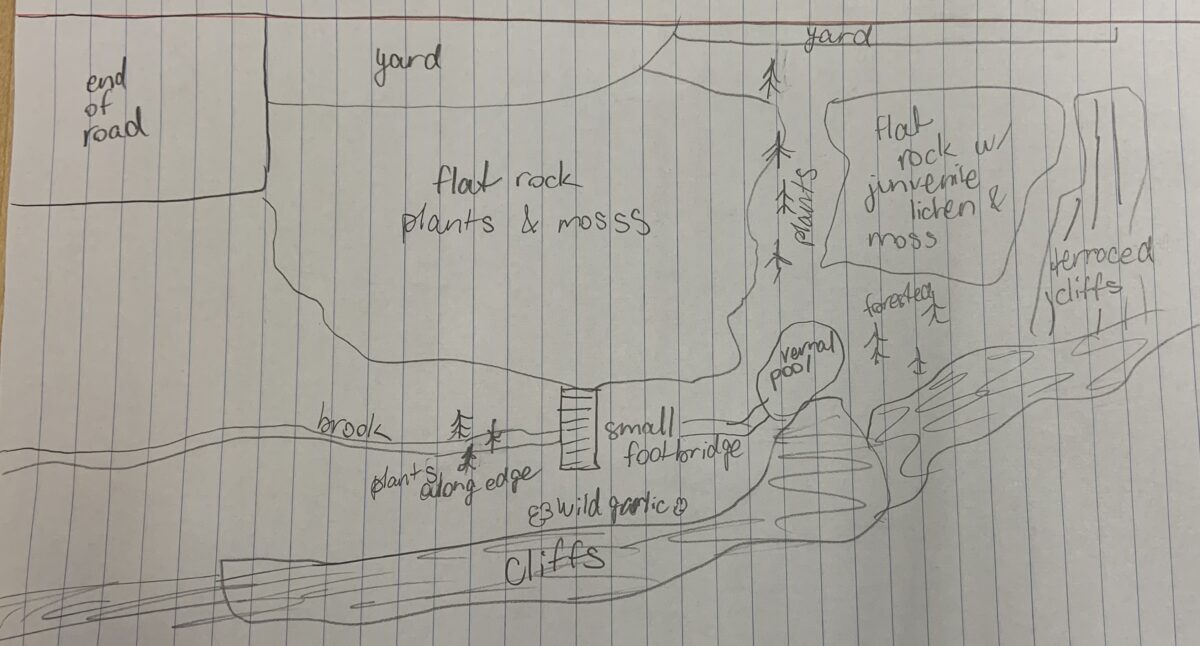 yard
yard
end
of
road
flat
rock w/
junvenile
lichen &
moss
flat rock
plants & mosss
plants
terraced
cliffs
forested
vernal
pool
brook
small
footbridge
plants
along edge
wild garlic
Cliffs